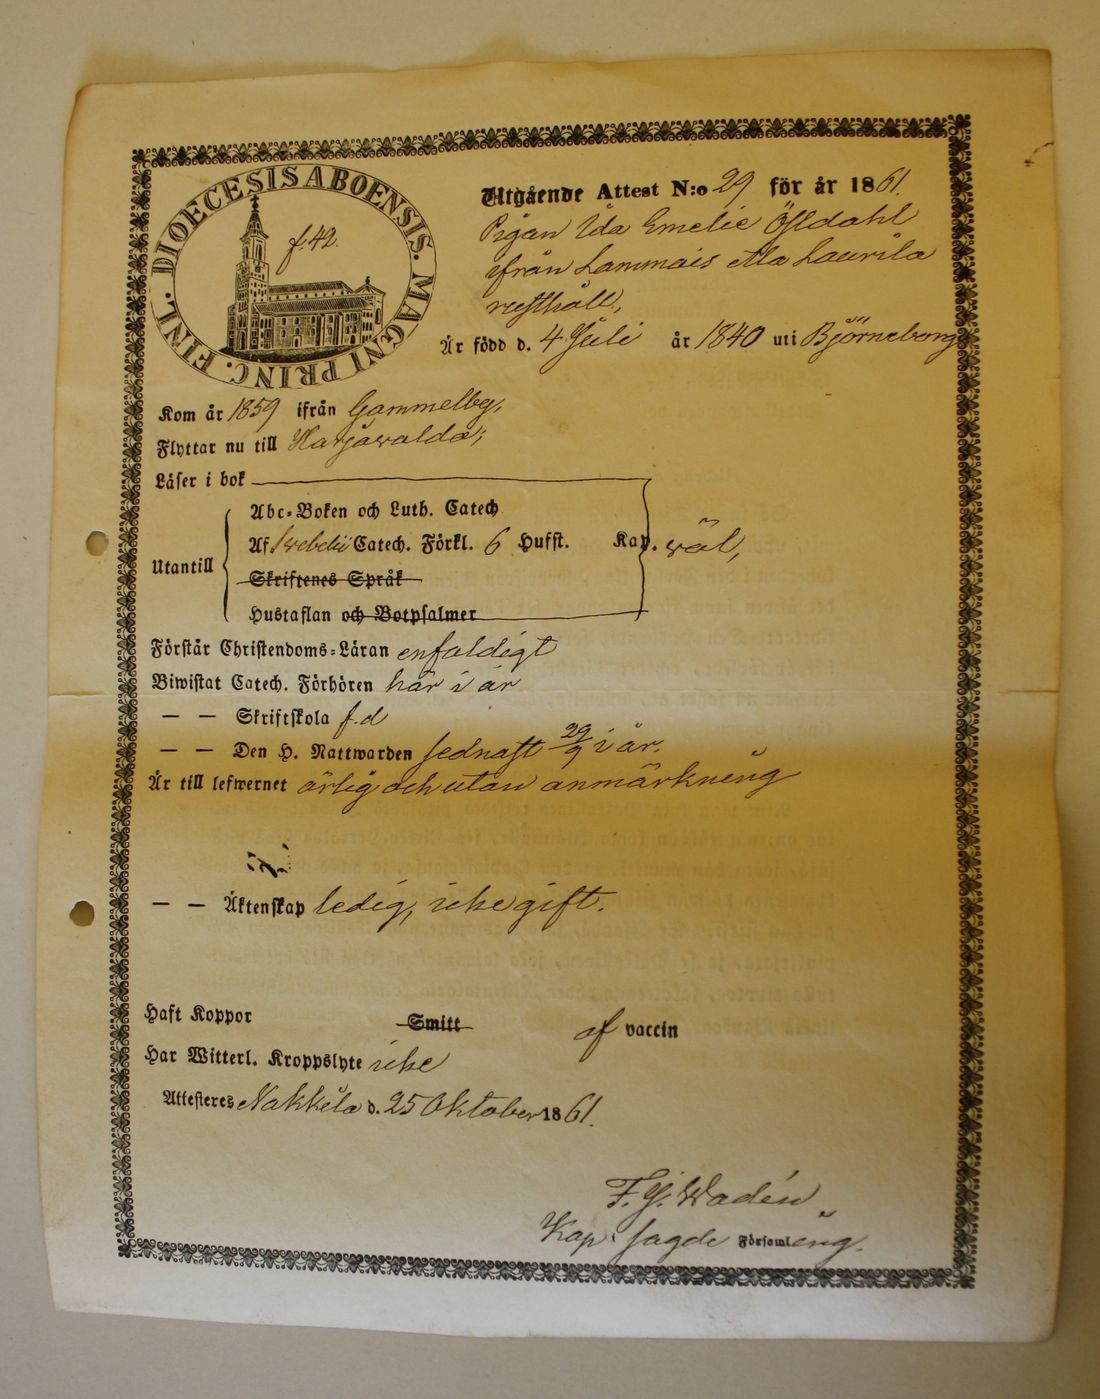 DIOECESIS ABOENSIS. MAGNI PRINC. FINL.
f. 42.
Utgående Attest N:o 29 för år 1861.
Pigan Ida Emelie Östdahl
ifrån Lammais Ala Laurila
rusthåll,
Är född d. 4 Juli år 1840 uti Björneborg
Kom år 1859 ifrån Gammelby,
Flyttar nu till Harjawalda;
Läser i bok
Abc-Boken och Luth. Catech
Utantill
Af Svebelii Catech. Förkl. 6 Hufst. Kap. wäl,
Skriftenes Språk
Hustaflan och Botpsalmer
Förstår Christendoms-Läran enfaldigt
Biwistat Catech. Förhören här i år
— — Skriftskola f.d
— — Den H. Nattwarden sednast 29/9 i år.
Är till lefwernet ärlig och utan anmärkning
— — Äktenskap ledig, icke gift.
Haft Koppor Smitt af vaccin
Har Witterl. Kroppslyte icke
Attesteres Nakkila d. 25 Oktober 1861.
F. J. Wadén
Kap. i sagde Församling.